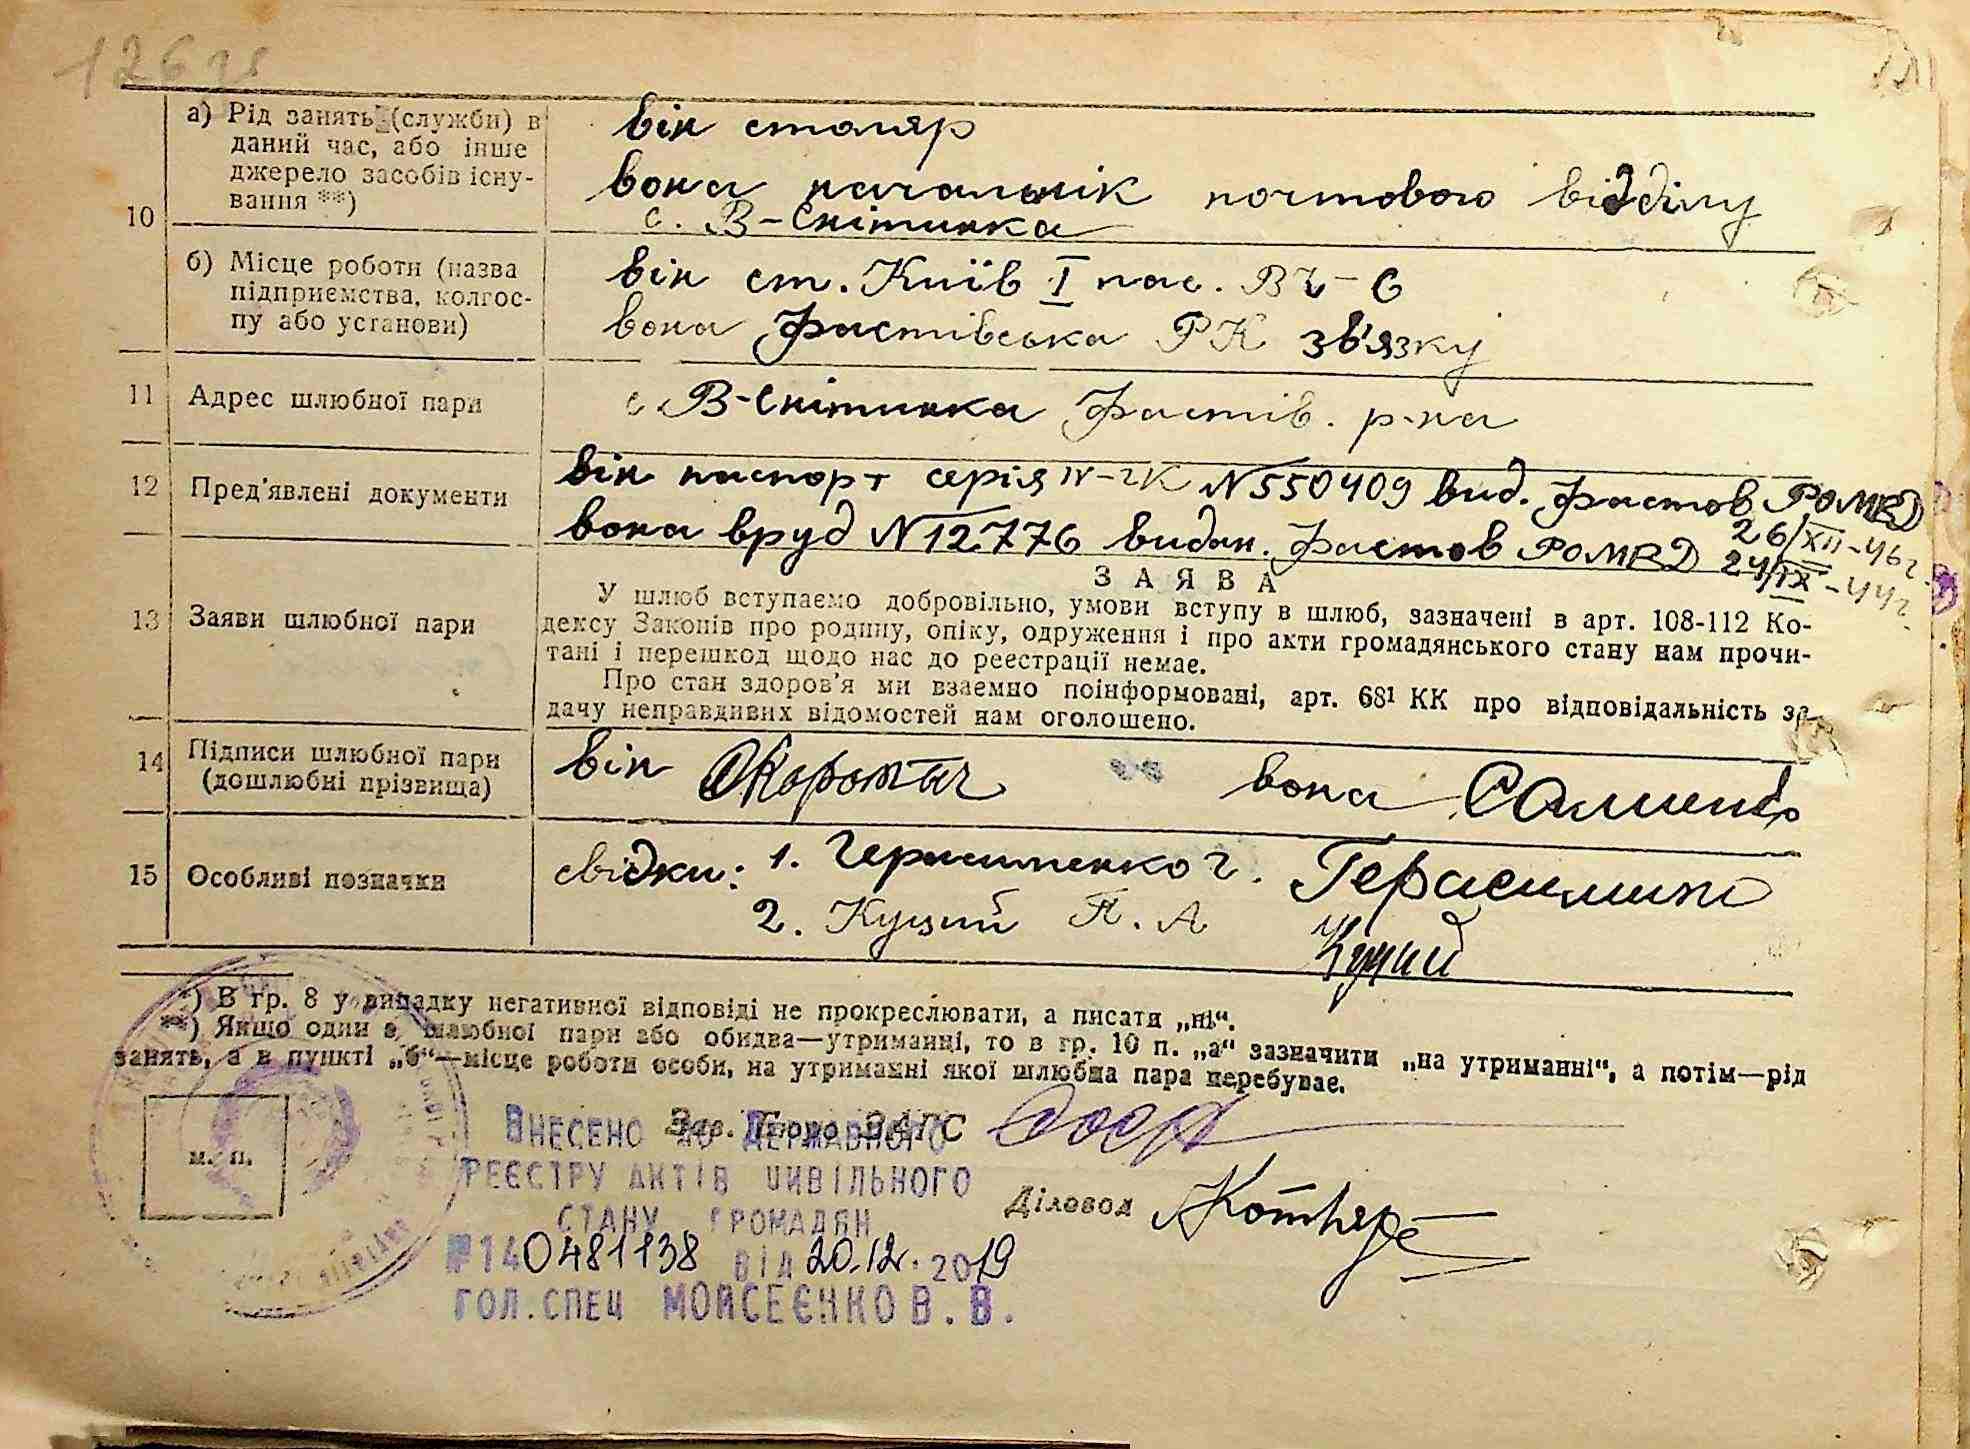 126
10
а) Рід занять (служби) в
даний час, або інше
джерело засобів існу-
вання **)
він столяр
вона начальнік почтового відділу
с. В-Снітинка
б) Місце роботи (назва
підприємства, колгос-
пу або установи)
він ст. Київ I пас. ВЧ-6
вона Фастівська РК зв'язку
11 Адрес шлюбної пари
с. В-Снітинка Фастів. р-на
12 Пред'явлені документи
він паспорт серія IV-ЧК №550409 вид. Фастов РОМВД
26/XII-46г.
вона вруд №12776 видан. Фастов РОМВД 24/IX-44г.
13 Заяви шлюбної пари
ЗАЯВА
У шлюб вступаємо добровільно, умови вступу в шлюб, зазначені в арт. 108-112 Ко-
дексу Законів про родину, опіку, одруження і про акти громадянського стану нам прочи-
тані і перешкод щодо нас до реєстрації немає.
Про стан здоров'я ми взаємно поінформовані, арт. 68¹ КК про відповідальність за
дачу неправдивих відомостей нам оголошено.
14 Підписи шлюбної пари
(дошлюбні прізвища)
він Скоротич вона
15 Особливі позначки
свідки: 1. Герасименко г.
2. Куций П. А
Куций
*) В гр. 8 у випадку негативної відповіді не прокреслювати, а писати „ні“.
**) Якщо один з шлюбної пари або обидва—утриманці, то в гр. 10 п. „а“ зазначити „на утриманні“, а потім—рід
занять, а в пункті „б“—місце роботи особи, на утриманні якої шлюбна пара перебуває.
м. п.
Зав. Бюро ЗАГС
Діловод
ВНЕСЕНО ДО ДЕРЖАВНОГО
РЕЄСТРУ АКТІВ ЦИВІЛЬНОГО
СТАНУ ГРОМАДЯН
№140481138 ВІД 20.12.2019
ГОЛ.СПЕЦ МОЙСЕЄНКО В.В.